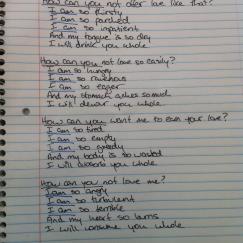 How can you not offer love like that?
I am so thirsty
I am so parched
I am so impatient
And my tongue is so dry
I will drink you whole
How can you not love so easily?
I am so hungry
I am so ravenous
I am so eager
And my stomach aches so much
I will devour you whole
How can you want me to earn your love?
I am so tired
I am so empty
I am so greedy
And my body is so wasted
I will you whole
How can you not love me?
I am so angry
I am so turbulent
I am so terrible
And my heart so burns
I will consume you whole